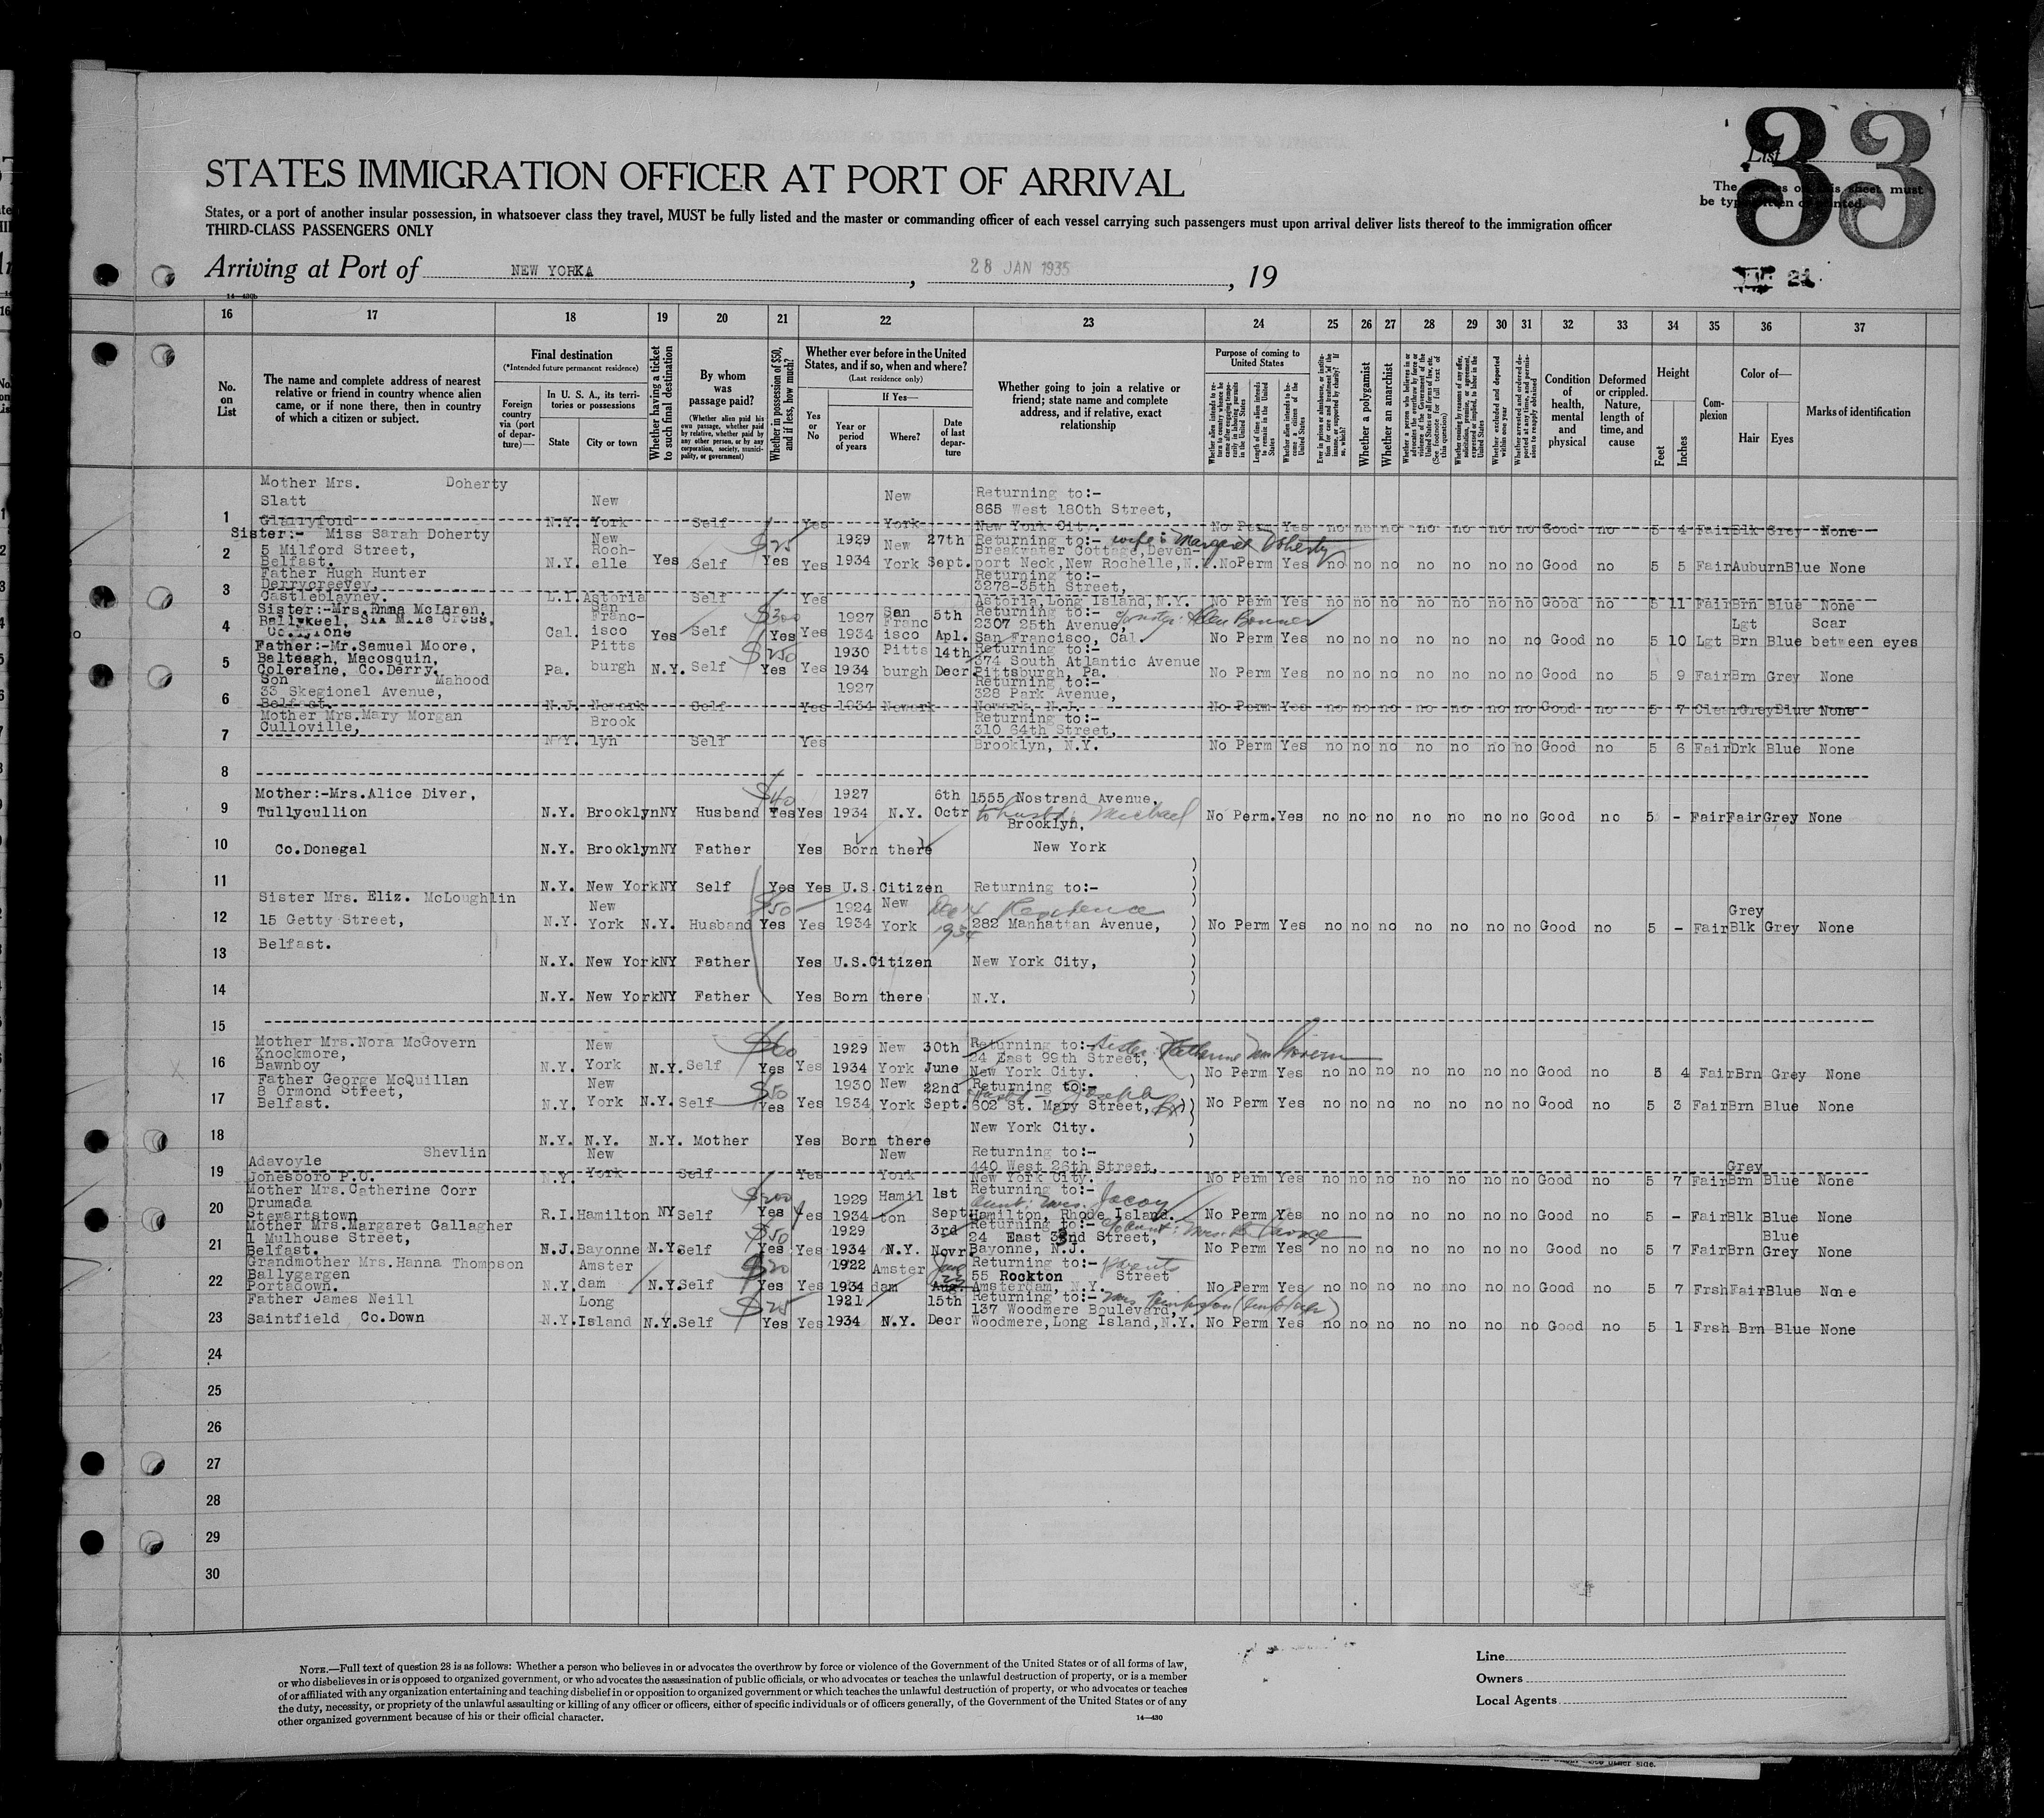 33
List
The entries on this sheet must
be typewritten or printed.
STATES IMMIGRATION OFFICER AT PORT OF ARRIVAL
States, or a port of another insular possession, in whatsoever class they travel, MUST be fully listed and the master or commanding officer of each vessel carrying such passengers must upon arrival deliver lists thereof to the immigration officer
THIRD-CLASS PASSENGERS ONLY
Arriving at Port of NEW YORKA, 28 JAN 1935, 19
14—430b
16 17 18 19 20 21 22 23 24 25 26 27 28 29 30 31 32 33 34 35 36 37
No. on List
The name and complete address of nearest relative or friend in country whence alien came, or if none there, then in country of which a citizen or subject.
Final destination
(*Intended future permanent residence)
Foreign country via (port of departure)—
In U. S. A., its territories or possessions
State
City or town
Whether having a ticket to such final destination
By whom was passage paid?
(Whether alien paid his own passage, whether paid by relative, whether paid by any other person, or by any corporation, society, municipality, or government)
Whether in possession of $50, and if less, how much?
Whether ever before in the United States, and if so, when and where?
(Last residence only)
Yes or No
If Yes—
Year or period of years
Where?
Date of last departure
Whether going to join a relative or friend; state name and complete address, and if relative, exact relationship
Purpose of coming to United States
Whether a polygamist
Whether an anarchist
Condition of health, mental and physical
Deformed or crippled. Nature, length of time, and cause
Height
Feet
Inches
Complexion
Color of—
Hair
Eyes
Marks of identification
1 Mother Mrs. Doherty Slatt Glarryford N.Y. New York Self Yes New York Returning to:- 865 West 180th Street, New York City. No Perm Yes no no no no no no no Good no 5 4 Fair Blk Grey None
2 Sister:- Miss Sarah Doherty 5 Milford Street, Belfast. N.Y. New Rochelle Yes Self $25 Yes Yes 1929 1934 New York 27th Sept. Returning to:- wife: Margaret Doherty Breakwater Cottage, Devenport Neck, New Rochelle, N.Y. No Perm Yes no no no no no no no Good no 5 5 Fair Auburn Blue None
3 Father Hugh Hunter Derrycreevey, Castleblayney. L.I. Astoria Self Yes Returning to:- 3278-35th Street, Astoria, Long Island, N.Y. No Perm Yes no no no no no no no Good no 5 11 Fair Brn Blue None
4 Sister:-Mrs. Emma McLaren, Ballykeel, Six Mile Cross, Co. Tyrone Cal. San Francisco Yes Self $300 Yes Yes 1927 1934 San Francisco 5th Apl. Returning to:- 2307 25th Avenue, San Francisco, Cal. No Perm Yes no no no no no no no Good no 5 10 Lgt Lgt Brn Blue Scar between eyes
5 Father:-Mr. Samuel Moore, Balteagh, Macosquin, Coleraine, Co. Derry. Pa. Pittsburgh N.Y. Self $250 Yes Yes 1930 1934 Pittsburgh 14th Decr Returning to:- 374 South Atlantic Avenue Pittsburgh, Pa. No Perm Yes no no no no no no no Good no 5 9 Fair Brn Grey None
6 Son Mahood 33 Skegionel Avenue, Belfast. N.J. Newark Self Yes 1927 1934 Newark Returning to:- 328 Park Avenue, Newark, N.J. No Perm Yes no no no no no no no Good no 5 7 Grey Blue None
7 Mother Mrs. Mary Morgan Culloville, N.Y. Brooklyn Self Yes Returning to:- 310 64th Street, Brooklyn, N.Y. No Perm Yes no no no no no no no Good no 5 6 Fair Drk Blue None
8
9 Mother:-Mrs. Alice Diver, Tullycullion N.Y. Brooklyn NY Husband $40 Yes Yes 1927 1934 N.Y. 6th Octr 1555 Nostrand Avenue, to husbd: Michael Brooklyn, No Perm. Yes no no no no no no no Good no 5 - Fair Fair Grey None
10 Co. Donegal N.Y. Brooklyn NY Father Yes Born there New York
11 N.Y. New York NY Self Yes Yes U.S. Citizen Returning to:-
12 Sister Mrs. Eliz. McLoughlin 15 Getty Street, N.Y. New York N.Y. Husband $50 Yes Yes 1924 1934 New York 1934 Residence 282 Manhattan Avenue, No Perm Yes no no no no no no no Good no 5 - Fair Grey Blk Grey None
13 Belfast. N.Y. New York NY Father Yes U.S. Citizen New York City,
14 N.Y. New York NY Father Yes Born there N.Y.
15
16 Mother Mrs. Nora McGovern Knockmore, Bawnboy N.Y. New York N.Y. Self $60 Yes Yes 1929 1934 New York 30th June Returning to:- sister: Katherine McGovern 24 East 99th Street, New York City. No Perm Yes no no no no no no no Good no 5 4 Fair Brn Grey None
17 Father George McQuillan 8 Ormond Street, Belfast. N.Y. New York N.Y. Self $50 Yes Yes 1930 1934 New York 22nd Sept. Returning to:- husbd - Joseph 602 St. Mary Street, Bx No Perm Yes no no no no no no no Good no 5 3 Fair Brn Blue None
18 N.Y. N.Y. N.Y. Mother Yes Born there New York City.
19 Shevlin Adavoyle Jonesboro P.O. N.Y. New York Self Yes New York Returning to:- 440 West 26th Street, New York City. No Perm Yes no no no no no no no Good no 5 7 Fair Grey Brn Blue None
20 Mother Mrs. Catherine Corr Drumada Stewartstown R.I. Hamilton NY Self $200 Yes Yes 1929 1934 Hamilton 1st Sept Returning to:- Aunt: Mrs. Jacoy Hamilton, Rhode Island. No Perm Yes no no no no no no no Good no 5 - Fair Blk Blue None
21 Mother Mrs. Margaret Gallagher 1 Mulhouse Street, Belfast. N.J. Bayonne N.Y. Self $50 Yes Yes 1929 1934 N.Y. 3rd Novr. Returning to:- 24 East 33nd Street, Bayonne, N.J. No Perm Yes no no no no no no no Good no 5 7 Fair Brn Blue Grey None
22 Grandmother Mrs. Hanna Thompson Ballygargen Portadown. N.Y. Amsterdam N.Y. Self $20 Yes Yes 1922 1934 Amsterdam Returning to:- parents 55 Rockton Street Amsterdam, N.Y. No Perm Yes no no no no no no no Good no 5 7 Frsh Fair Blue None
23 Father James Neill Saintfield Co. Down N.Y. Long Island N.Y. Self $25 Yes Yes 1921 1934 N.Y. 15th Decr Returning to:- 137 Woodmere Boulevard, Woodmere, Long Island, N.Y. No Perm Yes no no no no no no no Good no 5 1 Frsh Brn Blue None
24
25
26
27
28
29
30
NOTE.—Full text of question 28 is as follows: Whether a person who believes in or advocates the overthrow by force or violence of the Government of the United States or of all forms of law,
or who disbelieves in or is opposed to organized government, or who advocates the assassination of public officials, or who advocates or teaches the unlawful destruction of property, or is a member
of or affiliated with any organization entertaining and teaching disbelief in or opposition to organized government or which teaches the unlawful destruction of property, or who advocates or teaches
the duty, necessity, or propriety of the unlawful assaulting or killing of any officer or officers, either of specific individuals or of officers generally, of the Government of the United States or of any
other organized government because of his or their official character.
14—430
Line
Owners
Local Agents